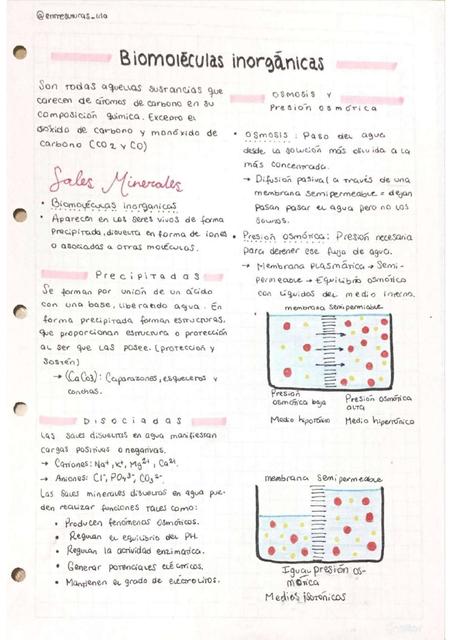 Biomoléculas inorgánicas
Son todas aquellas sustancias que
carecen de átomos de carbono en su
composición química. Excepto el
dióxido de carbono y monóxido de
carbono (CO2 y CO)
Sales Minerales
• Biomoléculas inorganicas
• Aparecen en los seres vivos de forma
precipitada, disuelta en forma de iones
o asociadas a otras moléculas.
Precipitadas
Se forman por unión de un ácido
con una base, liberando agua. En
forma precipitada forman estructuras,
que proporcionan estructura o protección
al ser que las posee. (protección y
sostén)
→ (CaCO3): Caparazones, esqueletos y
conchas.
Disociadas
Las sales disueltas en agua manifiestan
cargas positivas o negativas.
→ Cationes: Na+, K+, Mg2+, Ca2+.
→ Aniones: Cl-, PO43-, CO32-
Las sales minerales disueltas en agua pue-
den realizar funciones tales como:
• Producen fenómenos osmóticos.
• Regulan el equilibrio del PH.
• Regulan la actividad enzimática.
• Generar potenciales eléctricos.
• Mantienen el grado de electrolitos.
Osmosis y
Presión osmótica
• Osmosis: Paso del agua
desde la solución más diluida a la
más concentrada.
→ Difusión pasiva/ a través de una
membrana semipermeable = dejan
pasan pasar el agua pero no los
solutos.
• Presión osmótica: Presión necesaria
para detener ese flujo de agua.
→ Membrana plasmática → Semi-
permeable → Equilibrio osmótico
con líquidos del medio interno.
membrana semipermeable
Presión osmótica baja
Presión osmótica alta
Medio hipotónico
Medio hipertónico
membrana semipermeable
Igual presión os-
mótica
Medios isotónicos